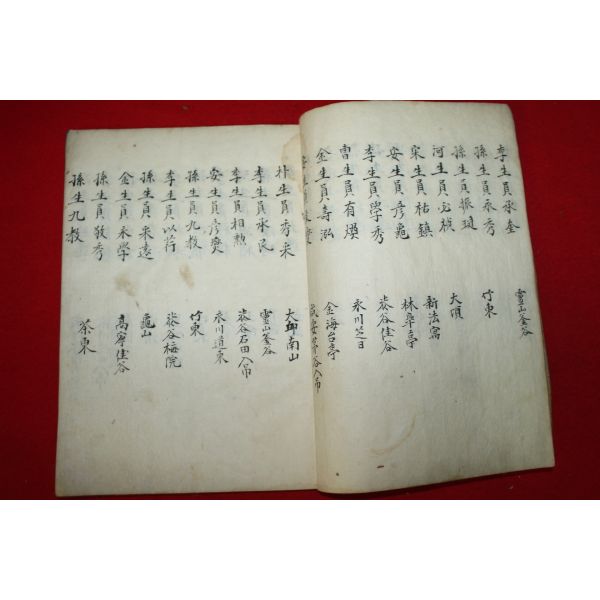 李生員承金 靈山釜谷
孫生員承秀 竹東
孫生員振璉 大項
河生員 新法
宋生員祐鎮 林亭
安生員彦龜 谷佳谷
李生員學秀 永川芝日
曺生員有煥
金生員壽泓 金海台亭
咸安 谷入吊
朴生員秀采 大邱南山
李生員承民 靈山釜谷
李生員相勲 谷石田入吊
安生員彦 永川道東
孫生員九教 竹東
李生員以 谷梅院
孫生員永遠 龜山
金生員永學 高寧佳谷
孫生員敬秀
孫生九教 茶東